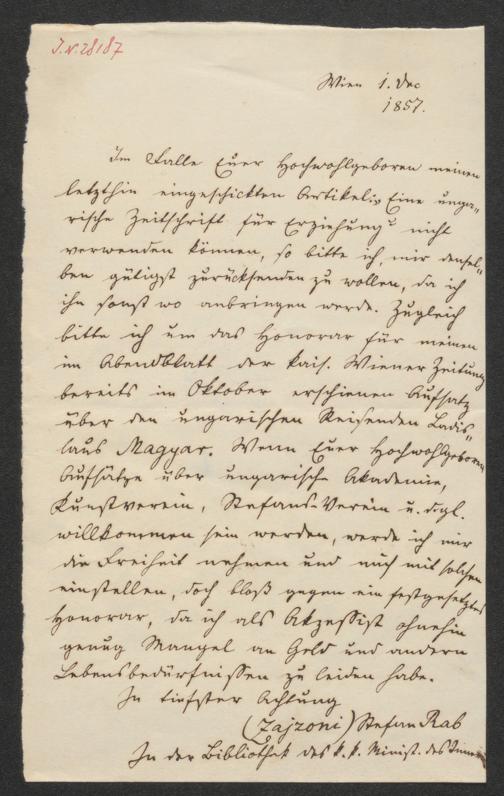 J.N. 28187
Wien 1. Dec
1857.
Im Falle Euer Hochwohlgeboren meinen
letzthin eingeschickten Artikel: Eine unga„
rische Zeitschrift für Erziehung" nicht
verwenden können, so bitte ich, mir densel„
ben gütigst zurücksenden zu wollen, da ich
ihn sonst wo anbringen werde. Zugleich
bitte ich um das Honorar für meinen
im Abendblatt der kais. Wiener Zeitung
bereits im Oktober erschienen Aufsatz
über den ungarischen Reisenden Ladis„
laus Magyar. Wenn Euer Hochwohlgeboren
Aufsätze über ungarische Akademie,
Kunstverein, Stefans-Verein u. dgl.
willkommen sein werden, werde ich mir
die Freiheit nehmen und auch mit solchen
einstellen, doch bloß gegen ein festgesetztes
Honorar, da ich als Akzessist ohnehin
genug Mangel an Geld und andern
Lebensbedürfnissen zu leiden habe.
In tiefster Achtung
(Zajzoni) Stefan Rab
In der Bibliothek des k. k. Minist. des Innern